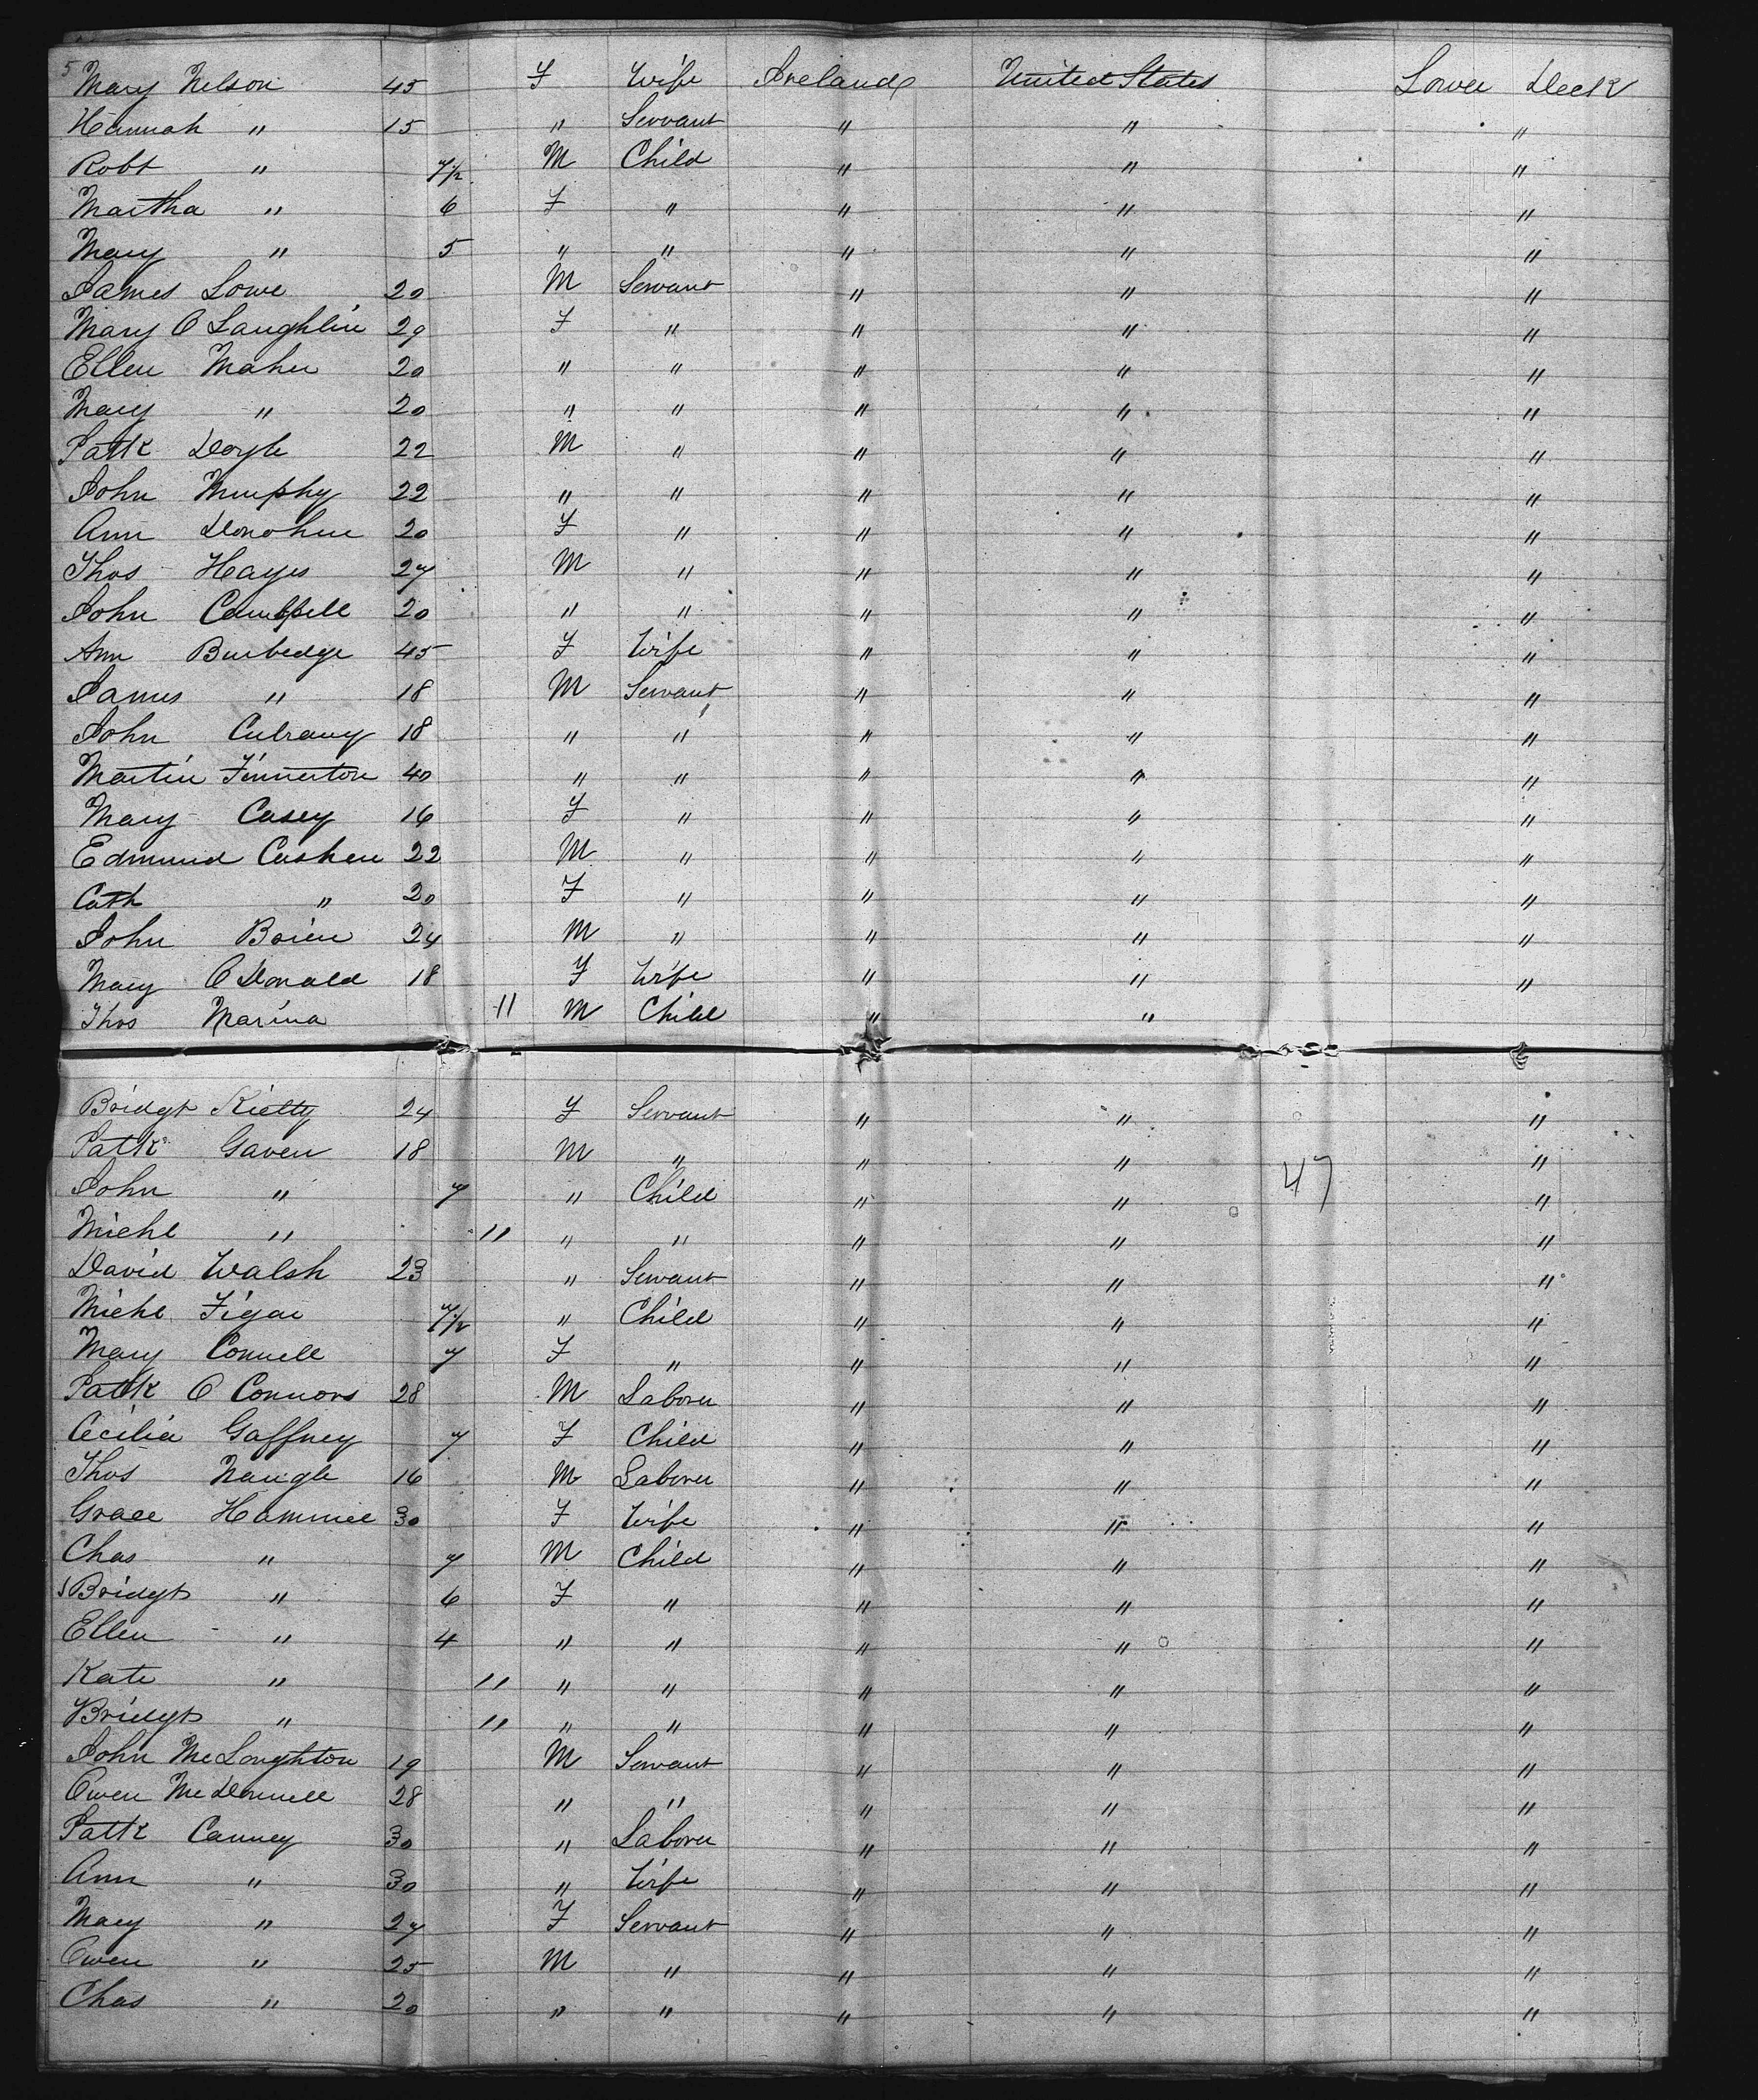 5 Mary Nelson 45 F Wife Ireland United States Lower Deck
Hannah " 15 " Servant " " "
Robt " 7½ M Child " " "
Martha " 6 F " " " "
Mary " 5 " " " " "
James Lowe 20 M Servant " " "
Mary O Laughlin 29 F " " " "
Ellen Maher 20 " " " " "
Mary " 20 " " " " "
Patk Doyle 22 M " " " "
John Murphy 22 " " " " "
Ann Donohue 20 F " " " "
Thos Hayes 27 M " " " "
John Campbell 20 " " " " "
Ann Burbedge 45 F Wife " " "
James " 18 M Servant " " "
John Culrany 18 " " " " "
Martin Finnerton 40 " " " " "
Mary Casey 16 F " " " "
Edmund Cashen 22 M " " " "
Cath " 20 F " " " "
John Brien 24 M " " " "
Mary O Donald 18 F Wife " " "
Thos Marina 11 M Child " "
Bridgt Kielty 24 F Servant " " "
Patk Gaven 18 M " " " "
John " 7 " Child " " 47 "
Michl " 11 " " " " "
David Walsh 23 " Servant " " "
Michl Figae 7½ " Child " " "
Mary Connell 7 F " " " "
Patk O Connors 28 M Laborer " " "
Cecilia Gaffney 7 F Child " " "
Thos Naugle 16 M Laborer " " "
Grace Hammill 30 F Wife " " "
Chas " 7 M Child " " "
Bridgt " 6 F " " " "
Ellen " 4 " " " " "
Kate " 11 " " " " "
Bridgt " 11 " " " " "
John McLoughton 19 M Servant " " "
Owen McDonnell 28 " " " " "
Patk Canney 30 " Laborer " " "
Ann " 30 " Wife " " "
Mary " 27 F Servant " " "
Owen " 25 M " " " "
Chas " 20 " " " " "